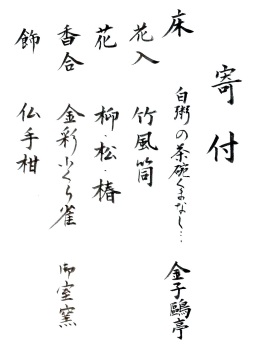 寄付
床 白粥の茶碗くまなし… 金子鷗亭
花入 竹風筒
花 柳・松・椿
香合 金彩ふくら雀 御室窯
飾 仏手柑